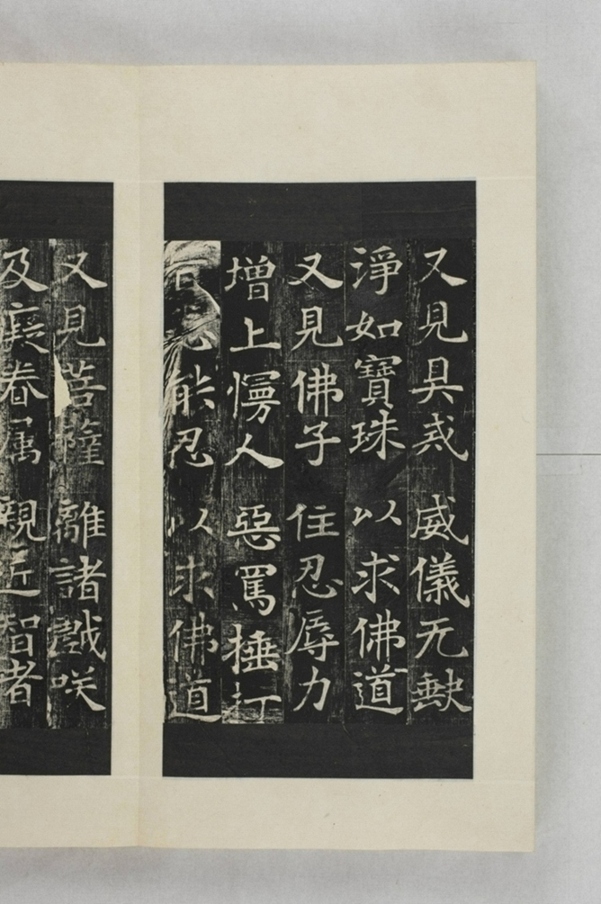 又見具戒 威儀无缺
淨如寶珠 以求佛道
又見佛子 住忍辱力
增上慢人 惡罵捶打
皆悉能忍 以求佛道
又見菩薩 離諸戲咲
及癡眷属 親近智者